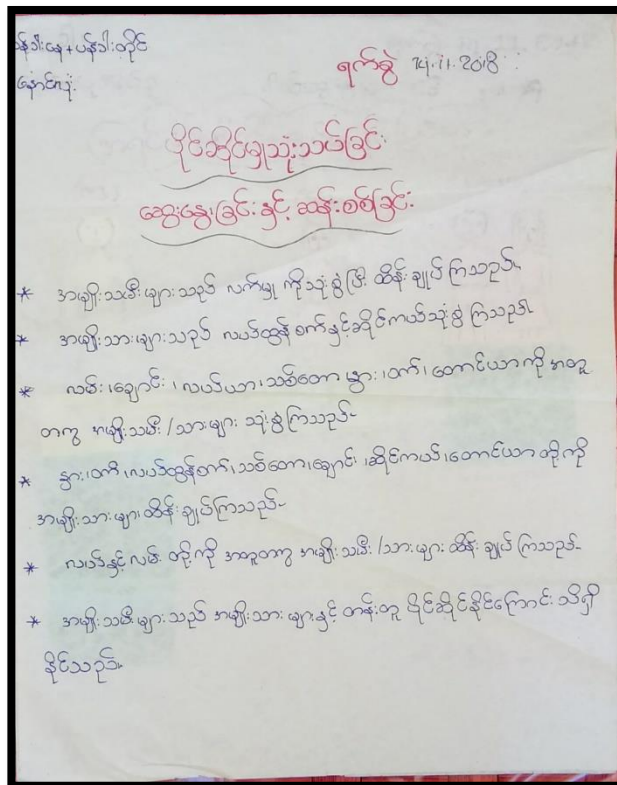 ပန်ဒါးနေ+ပန်ဒါးတိုင်
နောင်လုံ.
ရက်စွဲ 14.11.2018.
ပိုင်ဆိုင်မှုသုံးသပ်ခြင်း
ဆွေးနွေးခြင်းနှင့် ဆန်းစစ်ခြင်း
* အမျိုးသမီးများသည် လက်မှု ကိုသုံးစွဲပြီး ထိန်းချုပ်ကြသည်။
* အမျိုးသားများသည် လယ်ထွန်စက်နှင့်ဆိုင်ကယ်သုံးစွဲကြသည်။
* လမ်း၊ချောင်း၊လယ်ယာ၊သစ်တော၊နွား၊ဝက်၊တောင်ယာကို အတူ
တကွ အမျိုးသမီး/သားများ သုံးစွဲကြသည်။
* နွား၊ဝက်၊လယ်ထွန်စက်၊သစ်တော၊ချောင်း၊ဆိုင်ကယ်၊တောင်ယာ တို့ကို
အမျိုးသားများထိန်းချုပ်ကြသည်။
* လယ်နှင့်လမ်း တို့ကို အတူတကွ အမျိုးသမီး/သားများ ထိန်းချုပ်ကြသည်။
* အမျိုးသမီးများသည် အမျိုးသားများနှင့် တန်းတူ ပိုင်ဆိုင်နိုင်ကြောင်း သိရှိ
နိုင်သည်။